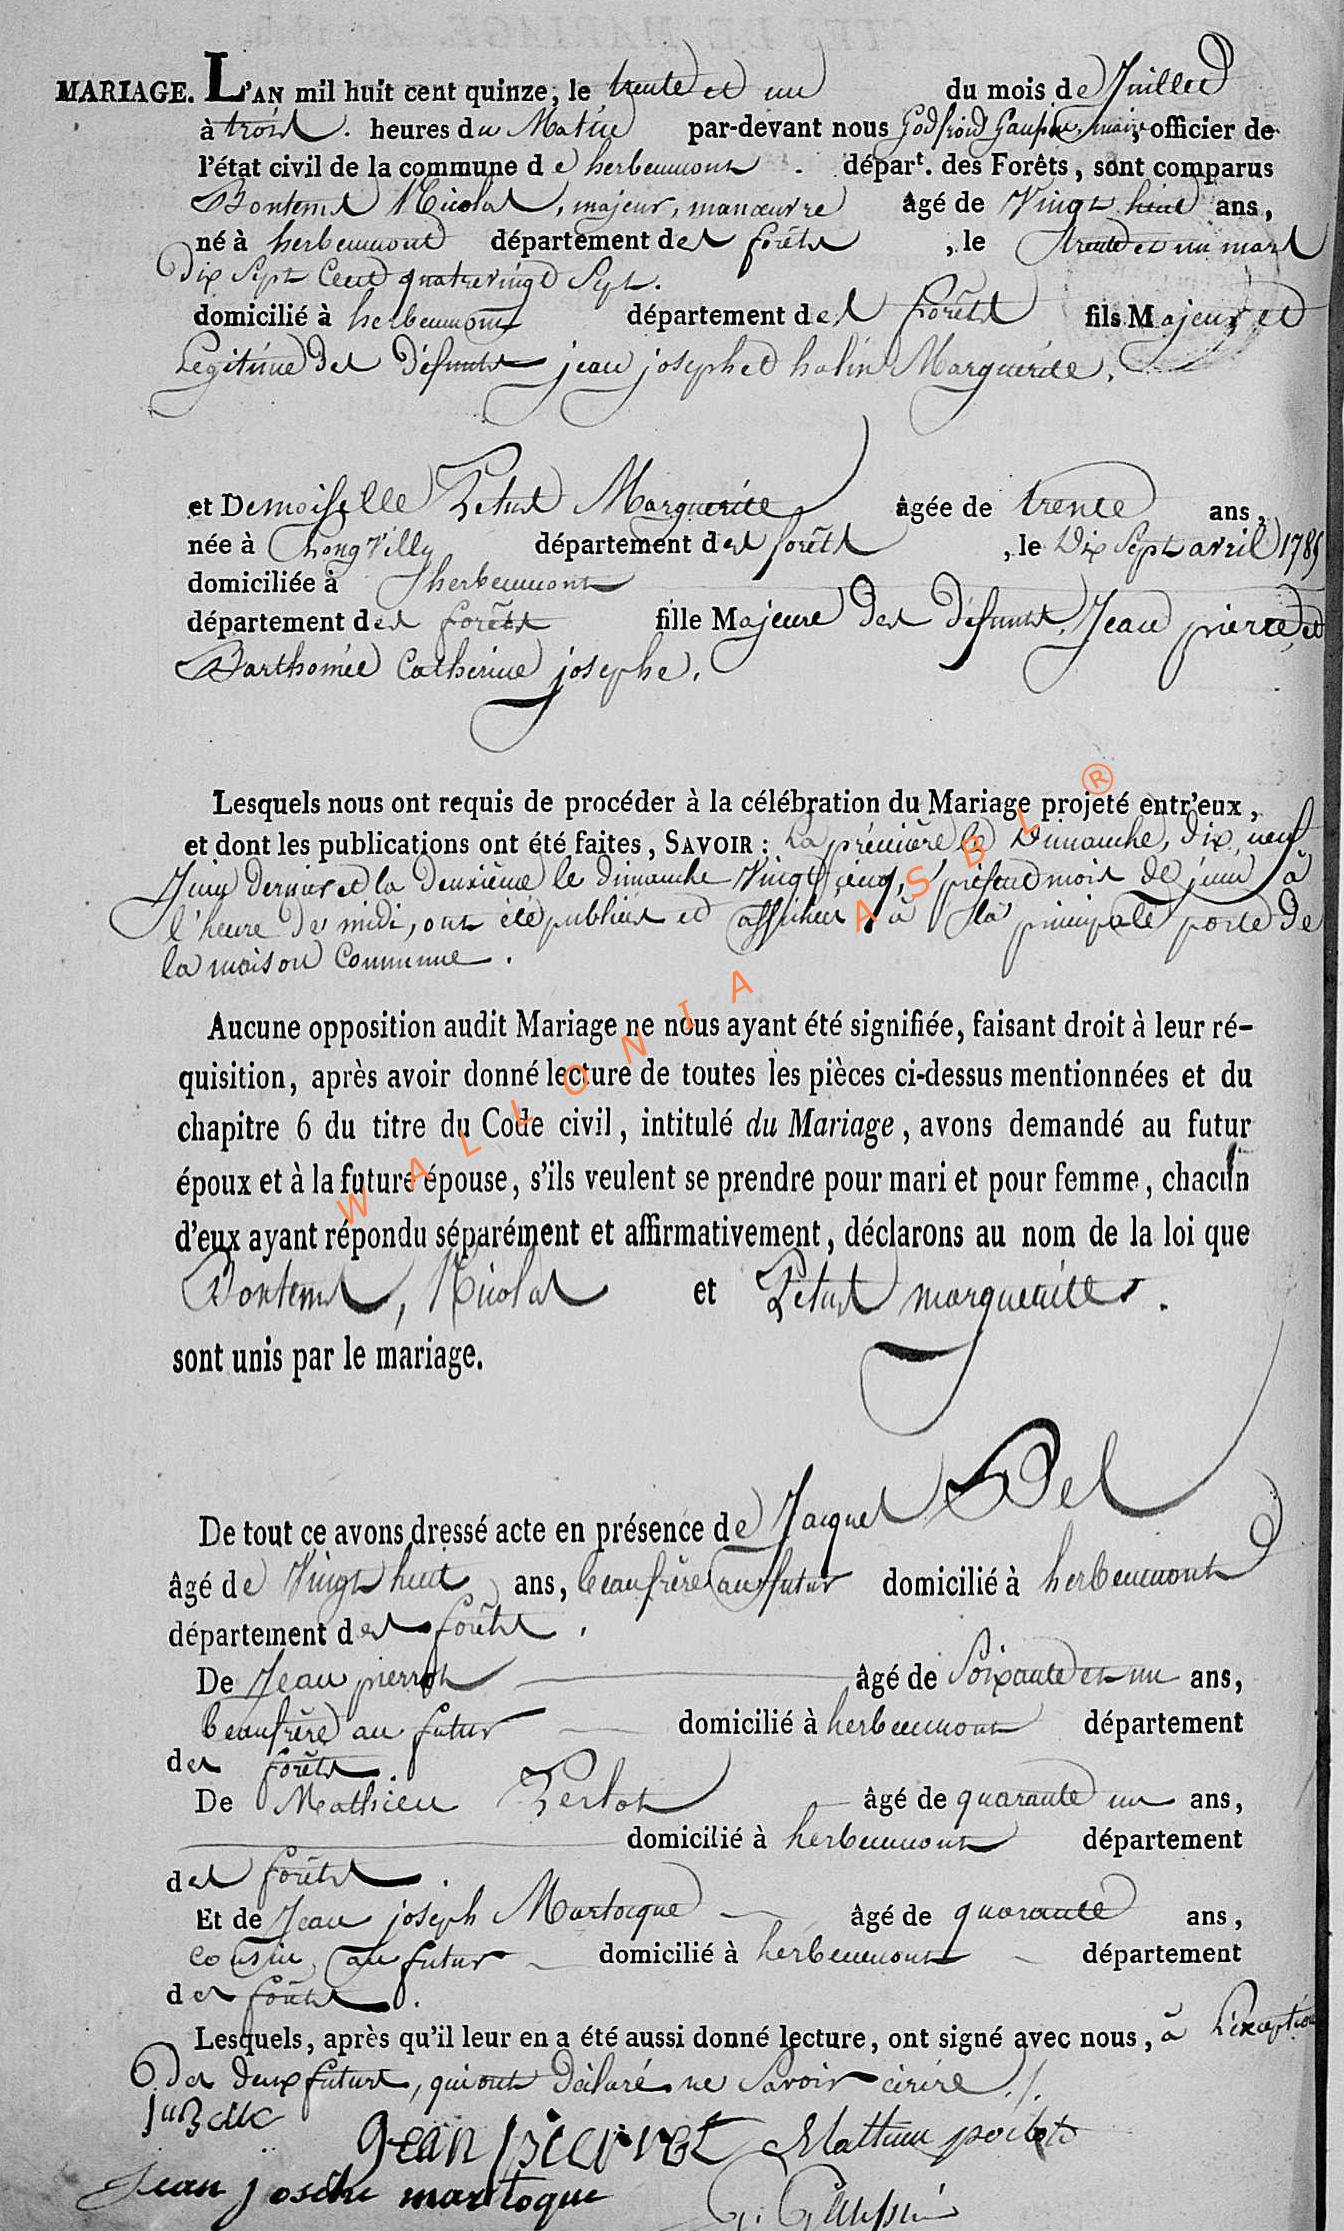 MARIAGE. L'AN mil huit cent quinze, le trente et un du mois de Juillet
à trois heures du Matin par-devant nous Godfroid Gaupin, maire, officier de
l'état civil de la commune de herbeumont . départ. des Forêts, sont comparus
Bontems Nicolas, majeur, manœuvre âgé de Vingt huit ans,
né à herbeumont département des forêts , le trente et un mars
dix Sept Cent quatrevingt Sept.
domicilié à herbeumont département des forêts fils Majeur et
Legitime des défunts jean joseph et halin Marguerite.
et Demoiselle Petus Marguerite âgée de trente ans,
née à Chongvilly département des forêts , le Dix Sept avril 1785
domiciliée à herbeumont
département des forêts fille Majeure des défunts, Jean pierre, et
Barthomée Catherine josephe.
Lesquels nous ont requis de procéder à la célébration du Mariage projeté entr'eux,
et dont les publications ont été faites, SAVOIR : La première le Dimanche, dix neuf
Juin dernier et la deuxième le dimanche Vingt cinq, présent mois de juin à
l'heure de midi, ont été publiées et affichées à la principale porte de
la maison Commune.
Aucune opposition audit Mariage ne nous ayant été signifiée, faisant droit à leur ré-
quisition, après avoir donné lecture de toutes les pièces ci-dessus mentionnées et du
chapitre 6 du titre du Code civil, intitulé du Mariage, avons demandé au futur
époux et à la future épouse, s'ils veulent se prendre pour mari et pour femme, chacun
d'eux ayant répondu séparément et affirmativement, déclarons au nom de la loi que
Bontems, Nicolas et Petus marguerite.
sont unis par le mariage.
WALLONIA ASBL ®
De tout ce avons dressé acte en présence de Jacques Bel
âgé de Vingt huit ans, beaufrère au futur domicilié à herbeumont
département des forêts.
De Jean pierrot âgé de Soixante et un ans,
beaufrère au futur domicilié à herbeumont département
des forêts.
De Mathieu Perlot âgé de quarante un ans,
domicilié à herbeumont département
des forêts.
Et de Jean joseph Martocque âgé de quarante ans,
cousin, au futur domicilié à herbeumont département
des forêts.
Lesquels, après qu'il leur en a été aussi donné lecture, ont signé avec nous, à L'exception
des deux futurs, qui ont déclaré ne Savoir ecrire ./.
jean pierrot Mathieu
jean josehe martoque
G. Gaupin